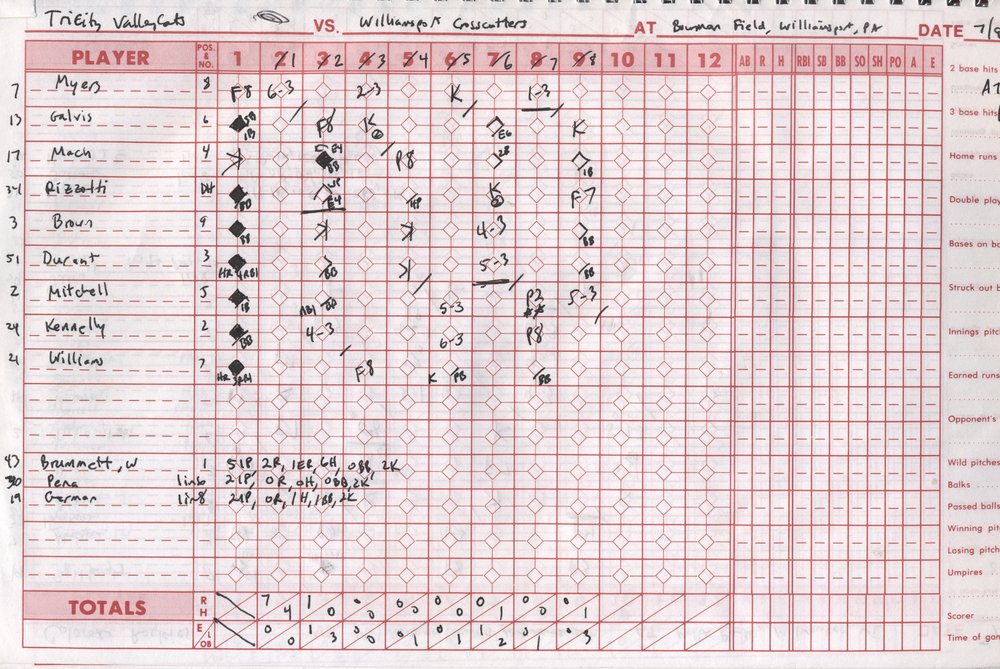 TriCity ValleyCats VS. Williamsport Crosscutters AT Bowman Field, Williamsport, PA DATE 7/8
PLAYER POS. & NO. 1 2/1 3/2 4/3 5/4 6/5 7/6 8/7 9/8 10 11 12 AB R H RBI SB BB SO SH PO A E
2 base hits
7 Myers 8 F8 6-3 2-3 K 1-3
3 base hits
13 Galvis 6 1B F8 K E6 K
17 Mach 4 E4 BB P8 2B 1B
Home runs
34 Rizzotti DH BB E4 HP K F-7
Double play
3 Brown 9 BB 4-3 BB
Bases on ba
51 Durant 3 HR 4RBI BB 5-3 BB
Struck out b
2 Mitchell 5 1B RBI 5-3 P2 5-3
24 Kennelly 2 BB 4-3 6-3 P8
Innings pitc
21 Williams 7 HR 3RBI F8 K PB BB
Earned runs
Opponent's
43 Brummett, W 1 5IP, 2R, 1ER, 6H, 0BB, 2K
Wild pitches
30 Pena 1in6 2IP, 0R, 0H, 0BB, 2K
Balks
19 German 1in8 2IP, 0R, 1H, 1BB, 2K
Passed balls
Winning pitc
Losing pitch
Umpires
TOTALS R H 7 4 1 0 0 0 0 0 0 0 0 1 0 0 0 1
Scorer
E LOB 0 0 1 3 0 0 0 1 0 1 1 2 0 1 0 3
Time of gam